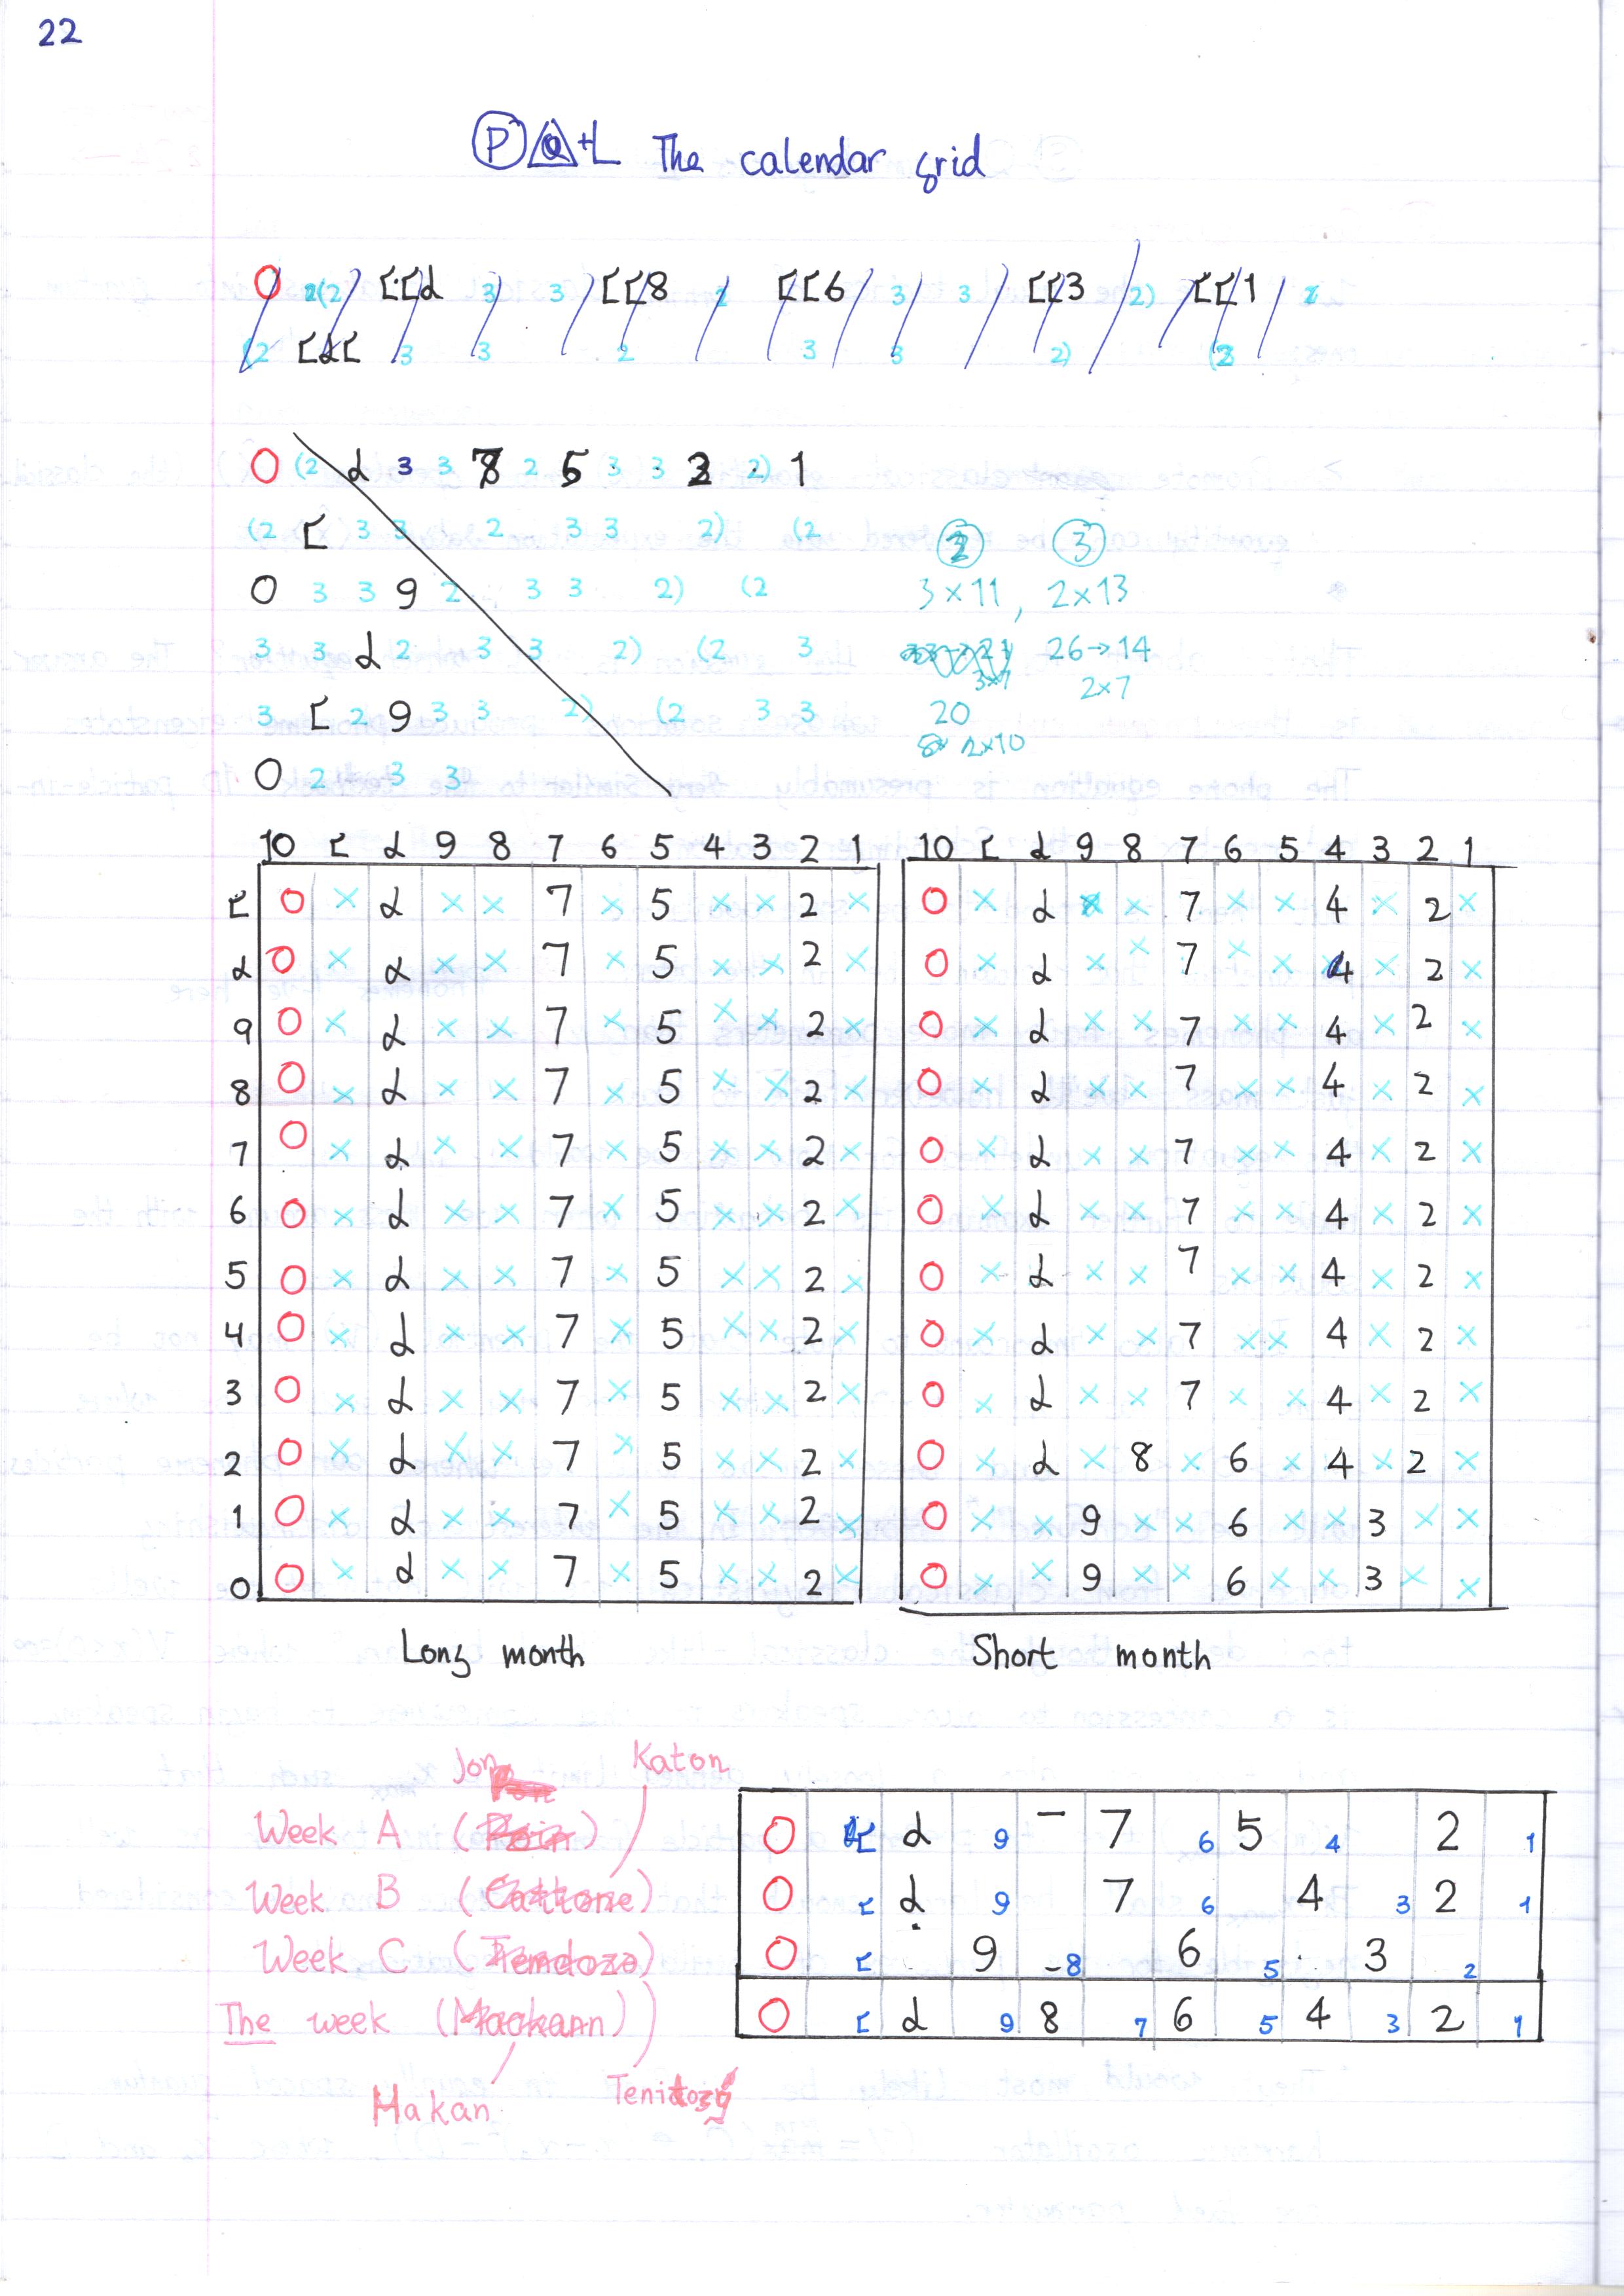 22
The calendar grid
0 2(2 ⵎⵎd 3 3 ⵎⵎ8 2 ⵎⵎ6 3 3 ⵎⵎ3 2) ⵎⵎ1
(2 3 3 2 3 3 2) (2
0 (2 d 3 3 7 2 5 3 3 2 2) 1
(2 ⵎ 3 3 2 3 3 2) (2
0 3 3 9 2 3 3 2) (2
3 3 d 2 3 3 2) (2 3
3 ⵎ 2 9 3 3 2) (2 3 3
0 2 3 3
2 3
3×11, 2×13
26→14
3×7 2×7
20
2×10
10 ⵎ d 9 8 7 6 5 4 3 2 1 10 ⵎ d 9 8 7 6 5 4 3 2 1
ⵎ 0 × d × × 7 × 5 × × 2 × 0 × d × × 7 × × 4 × 2 ×
d 0 × d × × 7 × 5 × × 2 × 0 × d × × 7 × × 4 × 2 ×
9 0 × d × × 7 × 5 × × 2 × 0 × d × × 7 × × 4 × 2 ×
8 0 × d × × 7 × 5 × × 2 × 0 × d × × 7 × × 4 × 2 ×
7 0 × d × × 7 × 5 × × 2 × 0 × d × × 7 × × 4 × 2 ×
6 0 × d × × 7 × 5 × × 2 × 0 × d × × 7 × × 4 × 2 ×
5 0 × d × × 7 × 5 × × 2 × 0 × d × × 7 × × 4 × 2 ×
4 0 × d × × 7 × 5 × × 2 × 0 × d × × 7 × × 4 × 2 ×
3 0 × d × × 7 × 5 × × 2 × 0 × d × × 7 × × 4 × 2 ×
2 0 × d × × 7 × 5 × × 2 × 0 × d × 8 × 6 × 4 × 2 ×
1 0 × d × × 7 × 5 × × 2 × 0 × × 9 × × 6 × × 3 × ×
0 0 × d × × 7 × 5 × × 2 × 0 × × 9 × × 6 × × 3 × ×
Long month Short month
Jon Katon
Week A (Poin) 0 ⵎ d 9 - 7 6 5 4 2 1
Week B (Cattone) 0 ⵎ d 9 7 6 4 3 2 1
Week C (Tendoza) 0 ⵎ 9 -8 6 5 3 2
The week (Maokann) 0 ⵎ d 9 8 7 6 5 4 3 2 1
Makan